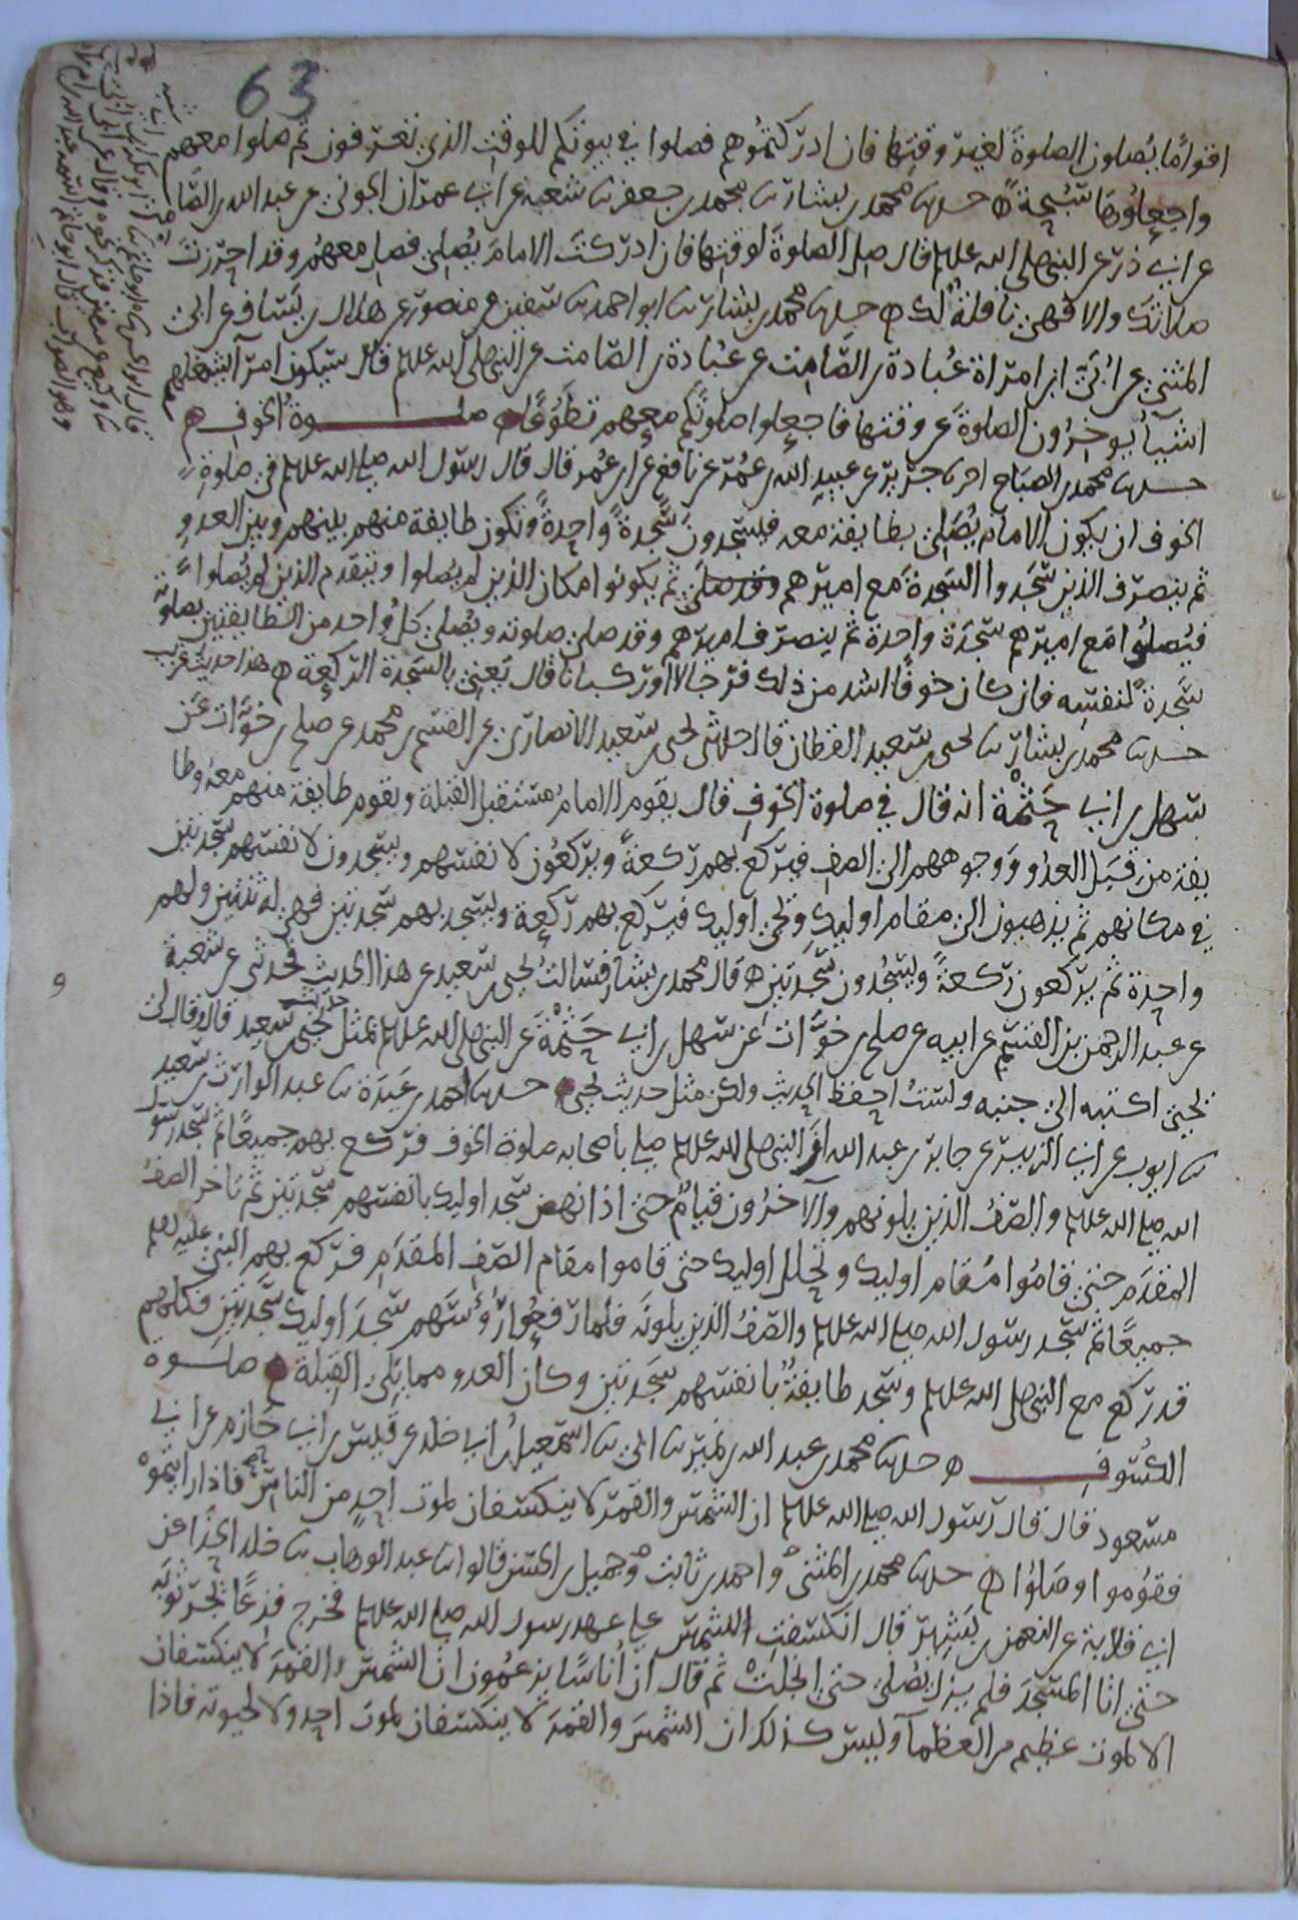 63
اقوامًا يُصلون الصلوةَ لغير وقتها فان ادركتموهم فصلوا في بيوتكم للوقت الذي تعرفون ثم صلوا معهم
واجعلوها سُبحةً ه حدثنا محمد بن بشار ثنا محمد بن جعفر ثنا شعبة عن ابي عمران الجوني عن عبد الله بن الصامت
عن ابي ذر عن النبي صلى الله عليه وسلم قال صل الصلوةَ لوقتها فان ادركتَ الامامَ يُصلي فصل معهم وقد احرزتَ
صلاتك والا فهي نافلةٌ لك ه حدثنا محمد بن بشار ثنا ابو احمد ثنا سفين عن منصور عن هلال بن يساف عن ابي
المثنى عن ابي ابن امراة عُبادة بن الصامت عن عُبادة بن الصامت عن النبي صلى الله عليه وسلم قال سيكون امرآ تشغلهم
اشيآ يوخرون الصلوةَ عن وقتها فاجعلوا صلوتكم معهم تطوعًا ه صلوة الخوف ه
حدثنا محمد بن الصباح انا جرير عن عبيد الله بن عُمر عن نافع عن ابن عُمر قال قال رسول الله صلى الله عليه وسلم في صلوة
الخوف ان يكون الامام يُصلي بطايفة معه فيسجدون سجدةً واحدةً وتكون طايفة منهم بينهم وبين العدو
ثم ينصرف الذين سجدوا السجدةَ مع اميرهم ثم يكونوا مكان الذين لم يُصلوا ويتقدم الذين لم يُصلوا
فيُصلوا مع اميرهم سجدة واحدة ثم ينصرف اميرهم وقد صلى صلوته ويُصلي كلُ واحد من الطايفتين بصلوته
سَجدةً لنفسه فان كان خوفًا اشد من ذلك فرجالا او ركبانا قال يَعني بالسجدة الركعة ه هذا حديث غريب
حدثنا محمد بن بشار ثنا يحيى بن سعيد القطان قال حدثني يحيى بن سعيد الانصاري عن القسم بن محمد عن صلح بن خوّات عن
سهل بن ابي حَثْمة انه قال في صلوة الخوفِ قال يقوم الامامُ مستقبل القبلة وتقوم طايفة منهم معه وطا
يفة من قبل العدو ووجوههم الى الصف فيركع بهم ركعةً ويركعون لانفسهم ويسجدون لانفسهم سجدتين
في مكانهم ثم يذهبون الى مقام اوليك ويجي اوليك فيركع بهم ركعة ويسجد بهم سجدتين فهي له ثنتين ولهم
واحدة ثم يركعون ركعةً ويسجُدون سجدتين ه قال محمد بن بشار فسالتُ يحيى بن سعيد عن هذا الحديث فحدثني عن شعبة
عن عبد الرحمن بن القسم عن ابيه عن صلح بن خوّات عن سهل بن ابي حَثْمةَ عن النبي صلى الله عليه وسلم بمثل حديث يحيى بن سعيد قال وقال لي
يحيى اكتبه الى جنبه ولستُ احفظ الحديث ولكن مثل حديث يحيى حدثنا احمد بن عَبدة ثنا عبد الوارث بن سعيد
ثنا ايوب عن ابي الزبير عن جابر بن عبد الله ان النبي صلى الله عليه وسلم صلى باصحابه صلوة الخوف فركع بهم جميعًا ثم سجد رسول
الله صلى الله عليه وسلم والصفُ الذين يلونهم والآخرون قيامٌ حتى اذا نهض سجد اوليك بانفسهم سجدتين ثم تاخر الصفُ
المقدم حتى قامُوا مُقام اوليك وتخلل اوليك حتى قاموا مقام الصف المقدم فركع بهم النبي عليه السلم
جميعًا ثم سجد رسول الله صلى الله عليه وسلم والصفُ الذين يلونَه فلما رفعوا رؤسَهم سجدَ اوليك سَجدتين فكلهم
قد ركع مع النبي صلى الله عليه وسلم وسجد طايفةٌ بانفسهم سَجدتين وكان العدو مما يلي القبلة ه صلوة
الكُسُوف ه حدثنا محمد بن عبد الله بن نمير ثنا ابي ثنا اسمعيل بن ابي خلد عن قيس بن ابي حازم عن ابي
مسعود قال قال رسول الله صلى الله عليه وسلم ان الشمسَ والقمرَ لا ينكسفان لموت احدٍ من الناس فاذا رايتموه
فقوموا وصَلوا ه حدثنا محمد بن المثنى واحمد بن ثابت وجميل بن الحسن قالوا ثنا عبد الوهاب ثنا خلد الحذا عن
ابي قلابة عن النعمن بن بَشير قال انكسفتِ الشمس على عهد رسول الله صلى الله عليه وسلم فخرج فزعًا يَجر ثوبَه
حتى اتا المسجدَ فلم يزل يُصلي حتى انجلتْ ثم قال ان أناسًا يزعمُون ان الشمسَ والقمرَ لا ينكسفان
الا لموت عظيم من العظمآ وليس كذلك ان الشمسَ والقمرَ لا ينكسفان لموت احدٍ ولا لحيوته فاذا